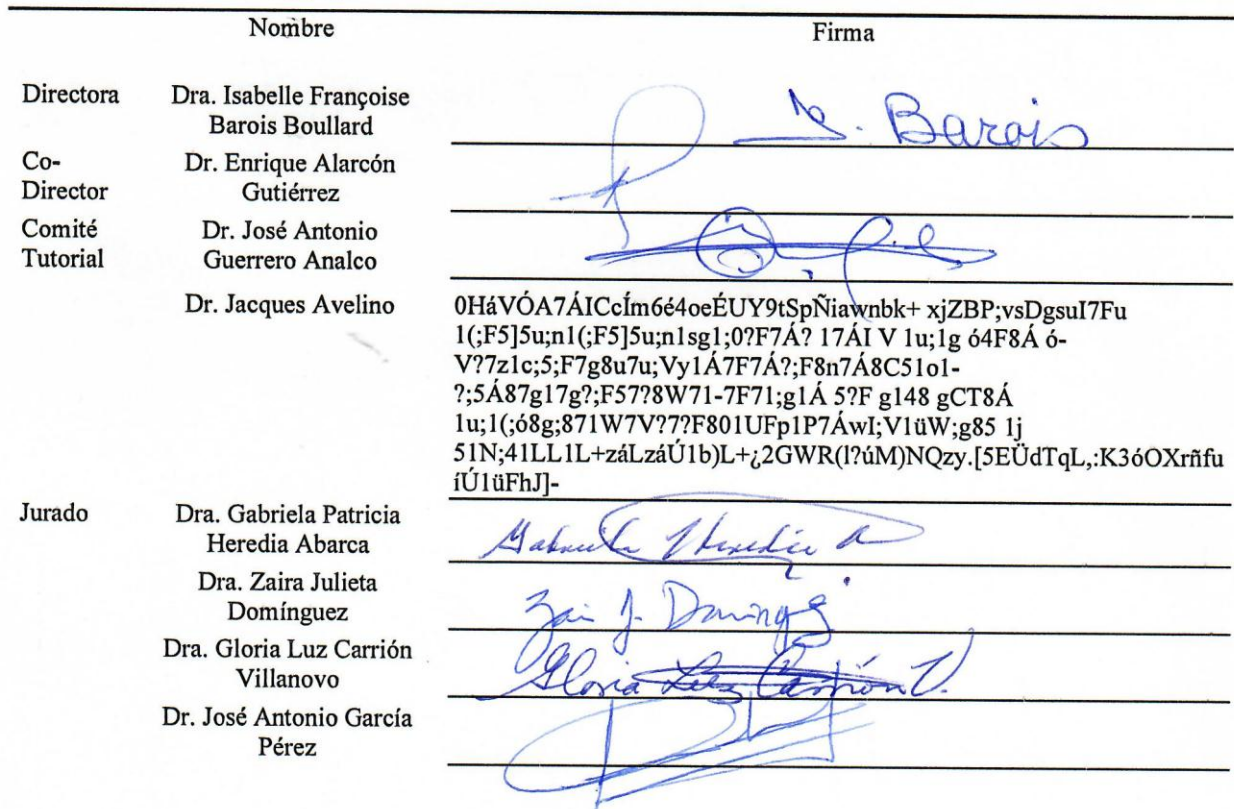 Nombre Firma
Directora Dra. Isabelle Françoise
Barois Boullard
I. Barois
Co-
Director
Dr. Enrique Alarcón
Gutiérrez
Comité
Tutorial
Dr. José Antonio
Guerrero Analco
Dr. Jacques Avelino
0HáVÓA7ÁICcÍm6é4oeÉUY9tSpÑiawnbk+ xjZBP;vsDgsuI7Fu
1(;F5]5u;n1(;F5]5u;n1sg1;0?F7Á? 17ÁI V 1u;1g ó4F8Á ó-
V?7z1c;5;F7g8u7u;Vy1Á7F7Á?;F8n7Á8C51o1-
?;5Á87g17g?;F57?8W71-7F71;g1Á 5?F g148 gCT8Á
1u;1(;ó8g;871W7V?7?F801UFp1P7ÁwI;V1üW;g85 1j
51N;41LL1L+záLzáÚ1b)L+¿2GWR(l?úM)NQzy.[5EÜdTqL,:K3óOXrñfu
íÚ1üFhJ]-
Jurado Dra. Gabriela Patricia
Heredia Abarca
Gabriela Heredia A
Dra. Zaira Julieta
Domínguez
Zai J. Doming
Dra. Gloria Luz Carrión
Villanovo
Gloria Luz Carrión V.
Dr. José Antonio García
Pérez